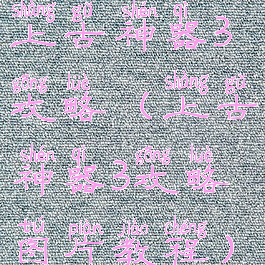 shàng gǔ shén qì
上古神器3
gōng luè shàng gǔ
攻略（上古
shén qì gōng luè
神器3攻略
tú piàn jiāo chéng
图片教程）